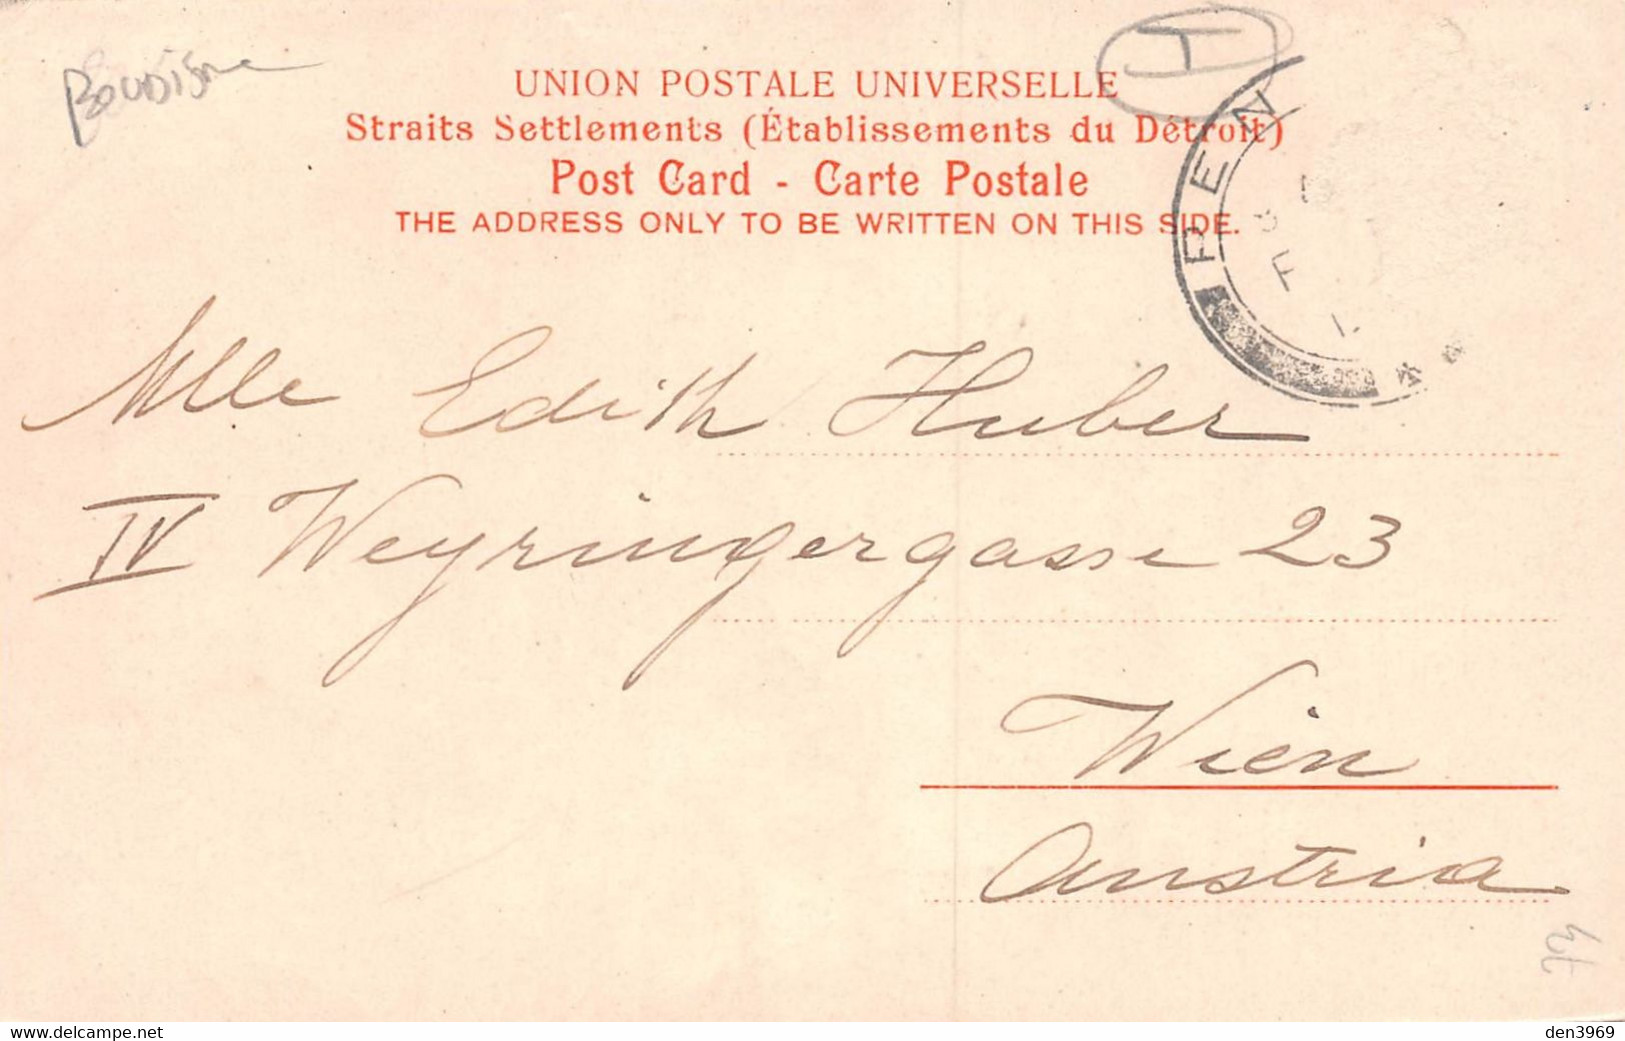 Boudisme
I
UNION POSTALE UNIVERSELLE
Straits Settlements (Établissements du Détroit)
Post Card - Carte Postale
THE ADDRESS ONLY TO BE WRITTEN ON THIS SIDE.
PEN
Mlle Edith Huber
IV Weyringergasse 23
Wien
Austria
www.delcampe.net
den3969